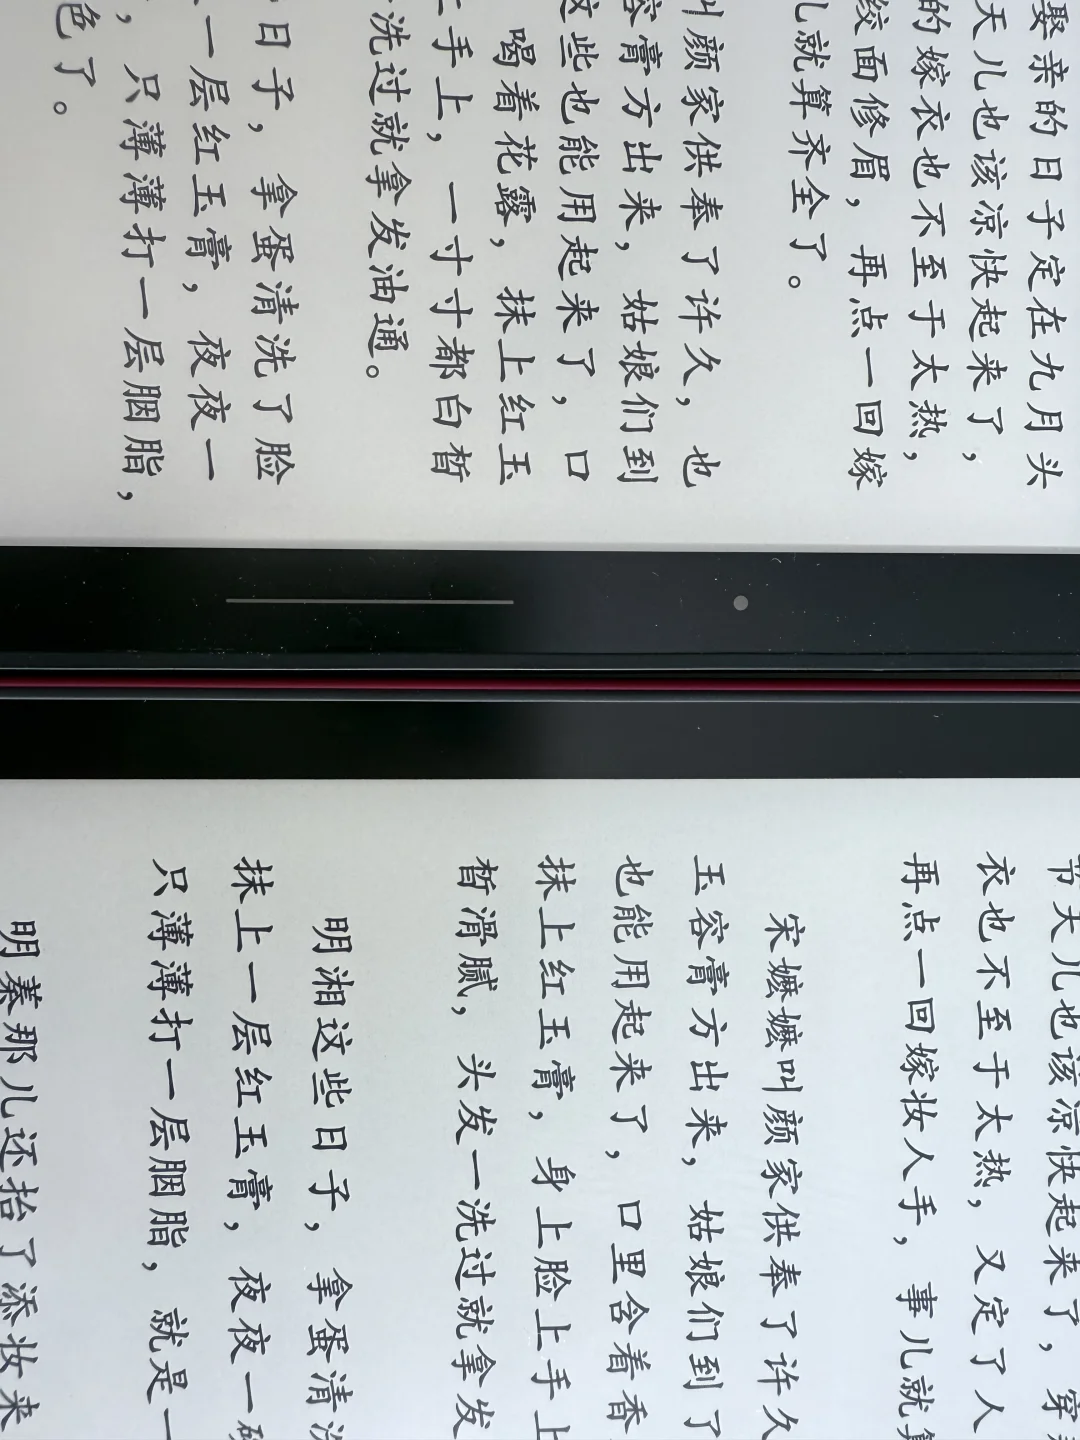 娶亲的日子定在九月头
天儿也该凉快起来了，
的嫁衣也不至于太热，
绞面修眉，再点一回嫁
儿就算齐全了。
叫颜家供奉了许久，也
容膏方出来，姑娘们到
这些也能用起来了，口
喝着花露，抹上红玉
手上，一寸寸都白皙
洗过就拿发油通。
日子，拿蛋清洗了脸
一层红玉膏，夜夜一
，只薄薄打一层胭脂，
色了。
节天儿也该凉快起来了，穿
衣也不至于太热，又定了人
再点一回嫁妆人手，事儿就算
宋嬷嬷叫颜家供奉了许久
玉容膏方出来，姑娘们到了
也能用起来了，口里含着香
抹上红玉膏，身上脸上手上
皙滑腻，头发一洗过就拿发
明湘这些日子，拿蛋清洗
抹上一层红玉膏，夜夜一
只薄薄打一层胭脂，就是一
明蓁那儿还抬了添妆来